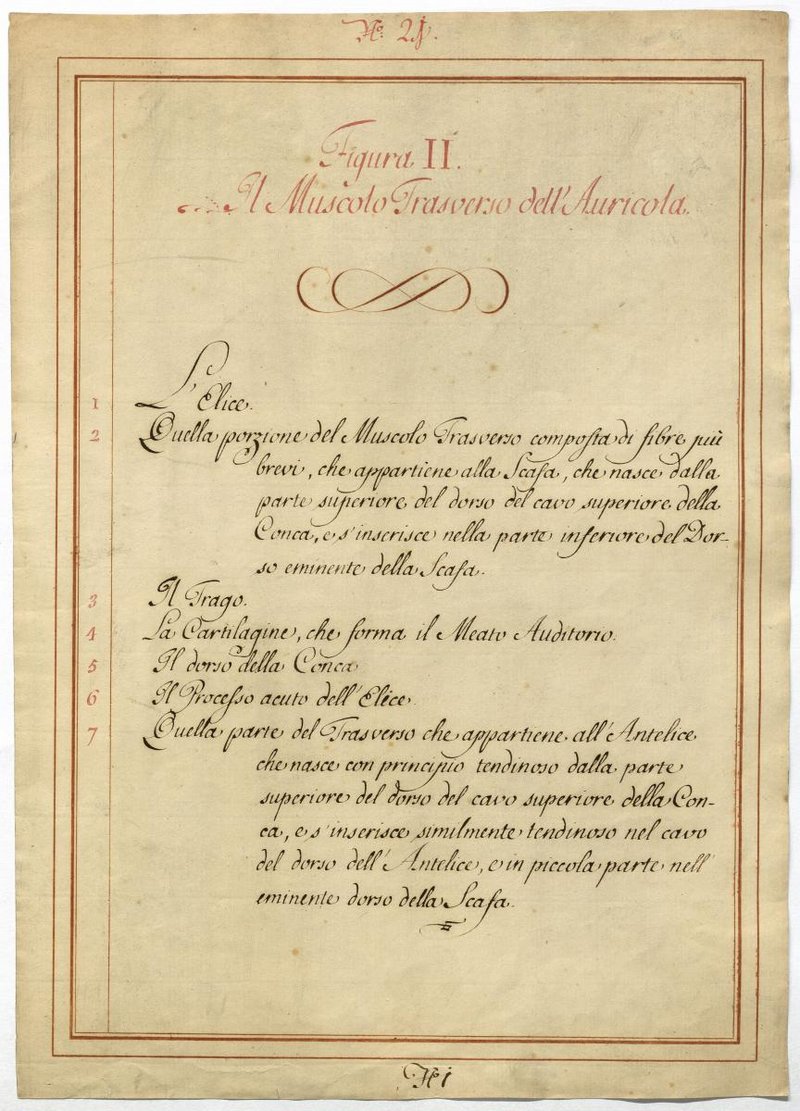 Nº.
Figura II.
Il Muscolo Trasverso dell'Auricola.
1 L'Elice.
2 Quella porzione del Muscolo Trasverso composta di fibre più
brevi, che appartiene alla Scafa, che nasce dalla
parte superiore del dorso del cavo superiore della
Conca, e s'inserisce nella parte inferiore del Dor-
so eminente della Scafa.
3 Il Trago.
4 La Cartilagine, che forma il Meato Auditorio.
5 Il dorso della Conca
6 Il Processo acuto dell'Elice.
7 Quella parte del Trasverso che appartiene all'Antelice
che nasce con principio tendinoso dalla parte
superiore del dorso del cavo superiore della Con-
ca, e s'inserisce similmente tendinoso nel cavo
del dorso dell'Antelice, e in piccola parte nell'
eminente dorso della Scafa.